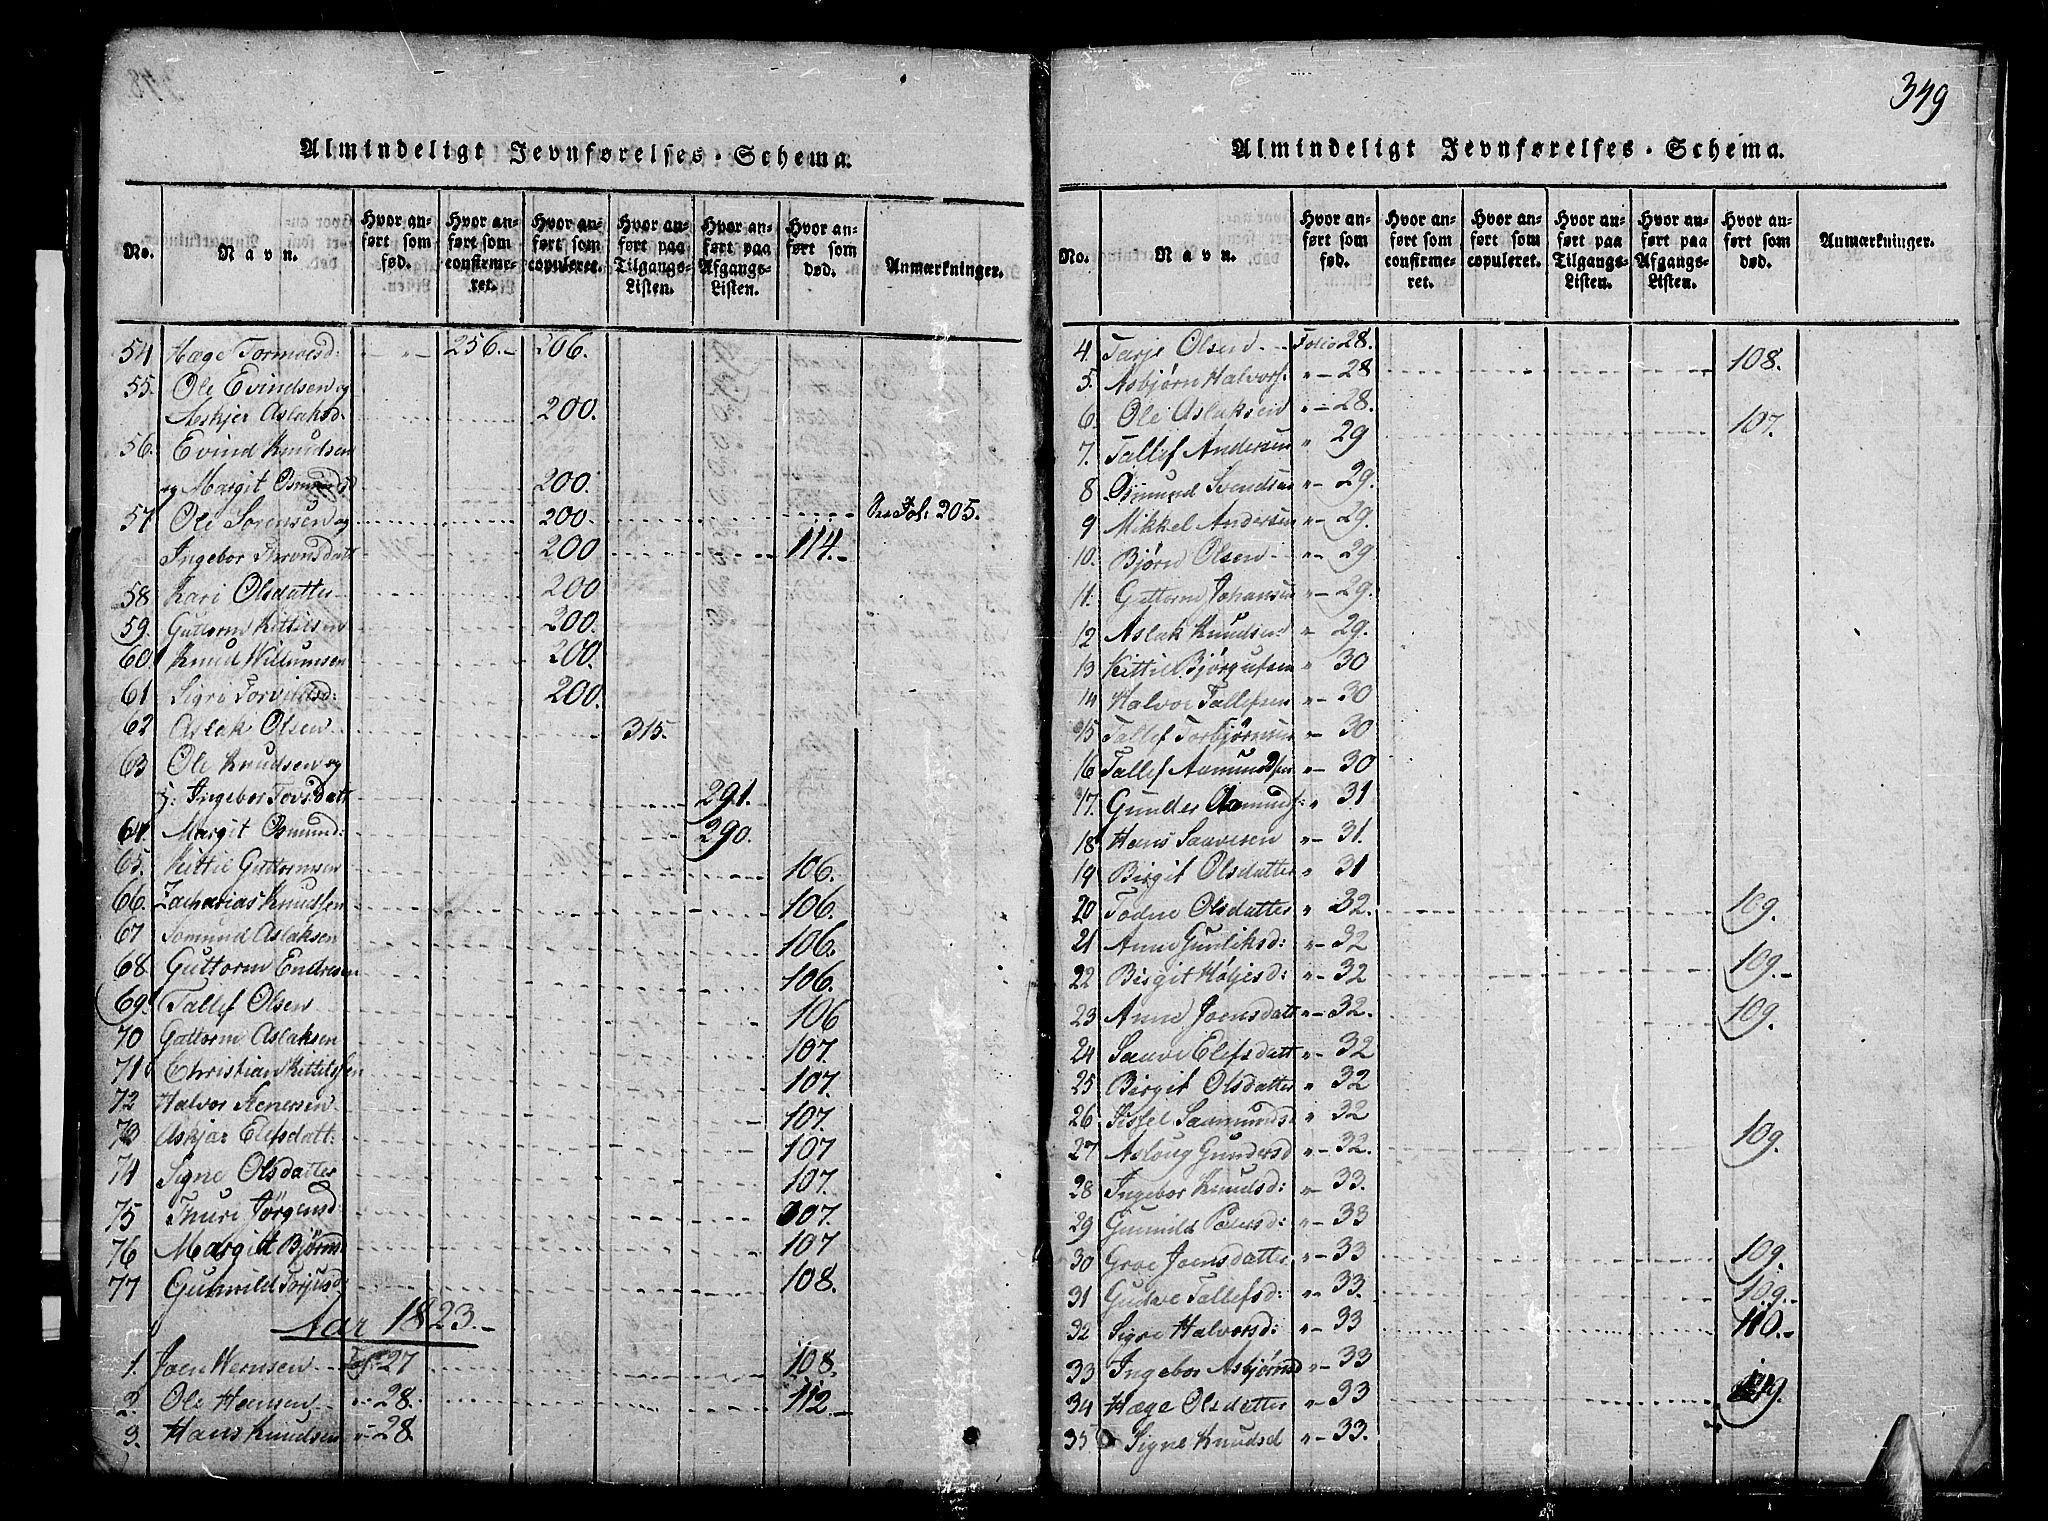 349
Almindeligt Jevnførelses-Schema.
No. Navn. Hvor anført som fød. Hvor anført som confirmeret. Hvor anført som copuleret. Hvor anført paa Tilgangs-Listen. Hvor anført paa Afgangs-Listen. Hvor anført som død. Anmærkninger.
54 Hæge Tormoesd: 256.- 206.
55. Ole Evindsen og
Askjer Aslaksd. 200.
56. Evind Knudsen
og Margit Osmundsd 200.
57. Ole Sørensen og 200. See Fol. 205.
Ingebor Thronsdatt 200 114.-
58 Kari Olsdatter 200
59. Guttorm Kittilsen 200.
60 Knud Willumsen 200.
61 Sigri Torvildsd: 200.
62 Aslak Olsen 315.
63 Ole Knudsen og
Ingebor Tovsdatt 291.
64. Margit Osmund: 290.
65. Kittil Guttormsen 106.
66. Zacharias Knudsen 106.
67 Somund Aslaksen 106.
68 Guttorm Endresen 106.
69. Tallef Olsen 106
70 Guttorm Aslaksen 107.
71 Christian Kittilsen 107.
72 Halvor Stenersen 107.
73 Askjær Elefsdatt: 107
74 Signe Olsdatter 107.
75 Thuri Jørgensd 107.
76 Margit Bjørns 107
77 Gunvild Torjusd: 108.
Aar 1823.-
1. Joen Wernsen Fol. 27 108.
2. Ole Hansen " 28. 112.-
3. Hans Knudsen " 28.
Almindeligt Jevnførelses-Schema.
No. Navn. Hvor anført som fød. Hvor anført som confirmeret. Hvor anført som copuleret. Hvor anført paa Tilgangs-Listen. Hvor anført paa Afgangs-Listen. Hvor anført som død. Anmærkninger.
4. Tarje Olsen Folio 28.
5. Asbjørn Halvors. " - 28 108.
6. Ole Aslaksen " - 28.
7. Tallef Andersen " 29 107.
8 Osmund Svendsen " - 29.
9 Mikkel Andersen " - 29.
10. Bjørn Olsen " - 29
11. Guttorm Johansen " - 29.
12 Aslak Knudsen " 29.
13 Kittil Bjørgufsen " 30
14 Halvor Tallefsen " - 30
15 Tallef Torbjørnsen " - 30
16 Tallef Aamundsen " - 30
17. Gunder Osmunds: " 31
18 Hans Saavesen " - 31.
19 Birgit Olsdatter " 31
20 Todne Olsdatter " 32. 109.
21 Anne Gunliksd: " - 32
22 Birgit Høljesd: " - 32 109.-
23 Anne Joensdatt " - 32. 109.
24 Saave Elefsdatt " - 32
25 Birgit Olsdatter " 32
26 Sissel Saamunds " 32
27 Asloug Gundersd " - 32. 109.
28 Ingebor Knudsd: " - 33.
29 Gunnild Pedersd: " - 33
30 Groe Joensdatter " - 33 109.
31 Gudve Tallefsd: " - 33. 109.-
32 Signe Halvorsd: " - 33 110.-
33 Ingebor Asbjørnsd " - 33
34 Hæge Olsdatter " - 33 119.
35 Signe Knudsd " - 33.